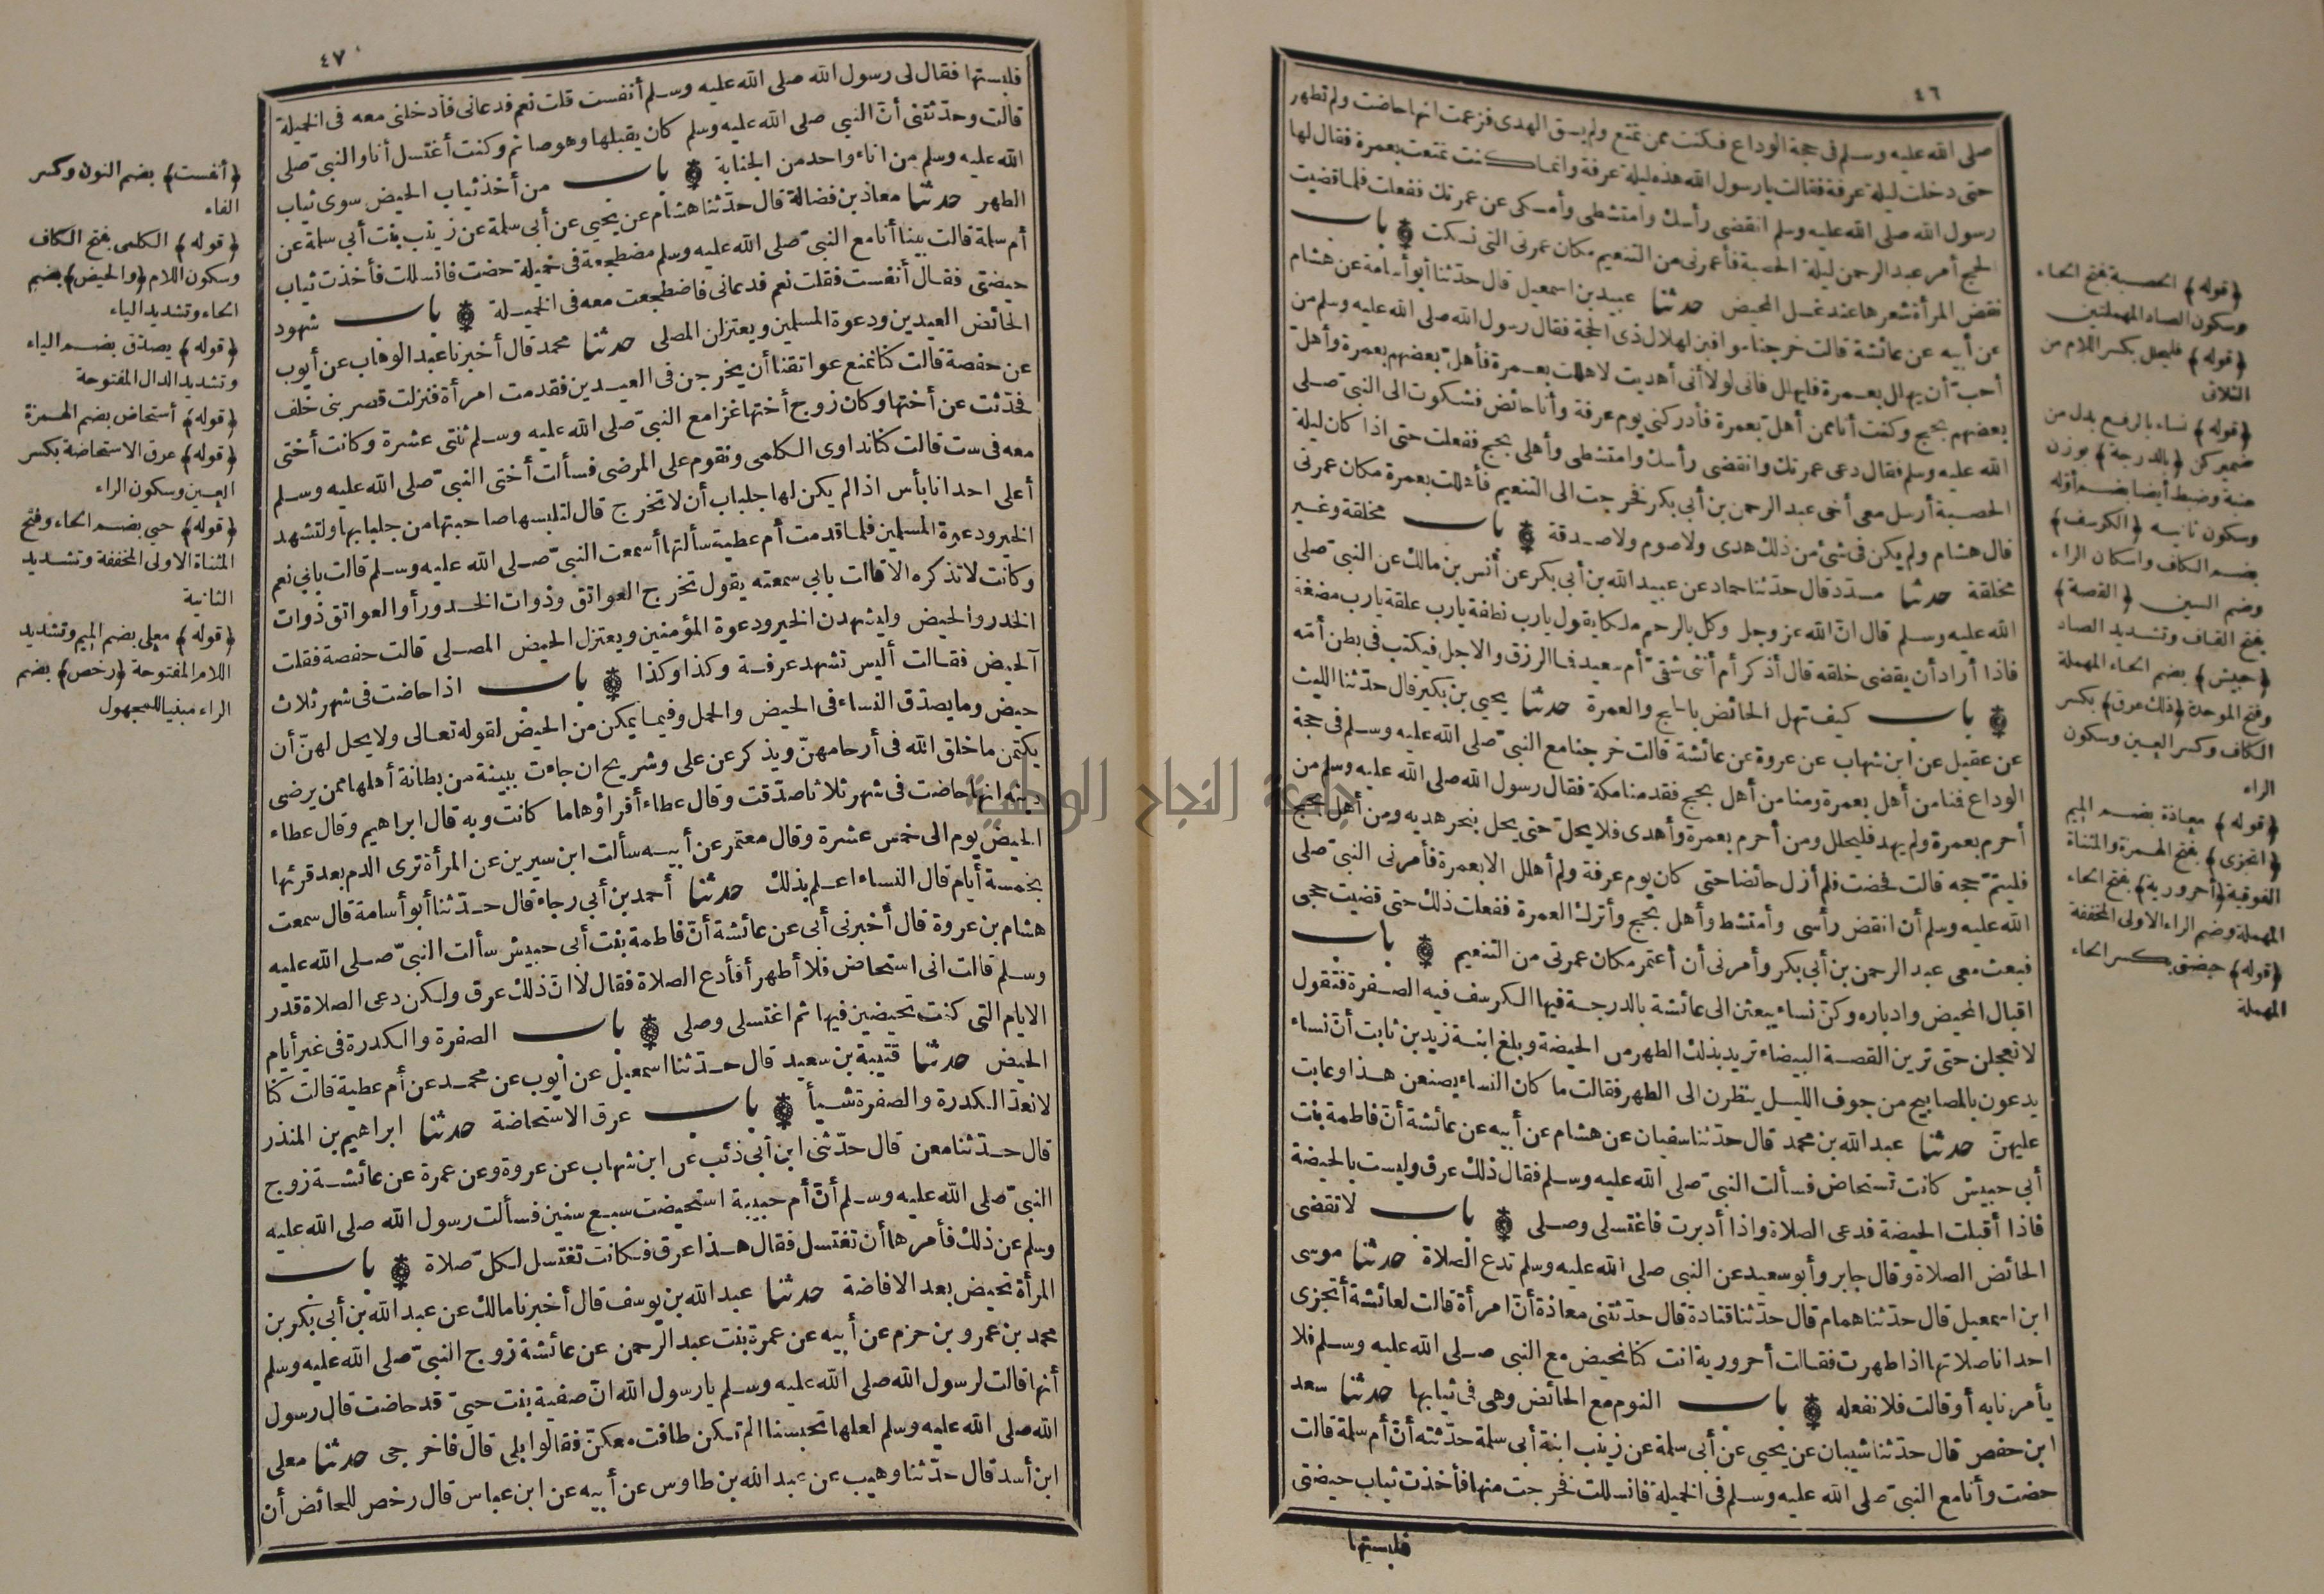 ٤٦
صلى الله عليه وسلم فى حجة الوداع فكنت ممن تمتع ولم يسق الهدى فزعمت انها حاضت ولم تطهر
حتى دخلت ليلة عرفة فقالت يارسول الله هذه ليلة عرفة وانما كنت تمتعت بعمرة فقال لها
رسول الله صلى الله عليه وسلم انقضى رأسك وامتشطى وأمسكى عن عمرتك ففعلت فلما قضيت
الحج أمر عبد الرحمن ليلة الحصبة فأعمرنى من التنعيم مكان عمرتى التى نسكت باب
نقض المرأة شعرها عند غسل المحيض حدثنا عبيد بن اسمعيل قال حدّثنا أبو أسامة عن هشام
عن أبيه عن عائشة قالت خرجنا موافين لهلال ذى الحجة فقال رسول الله صلى الله عليه وسلم من
أحبّ أن يهلل بعمرة فليهلل فانى لولا أنى أهديت لاهللت بعمرة فأهلّ بعضهم بعمرة وأهلّ
بعضهم بحج وكنت أنا ممن أهلّ بعمرة فأدركنى يوم عرفة وأنا حائض فشكوت الى النبىّ صلى
الله عليه وسلم فقال دعى عمرتك وانقضى رأسك وامتشطى وأهلى بحج ففعلت حتى اذا كان ليلة
الحصبة أرسل معى أخى عبد الرحمن بن أبى بكر فخرجت الى التنعيم فأهللت بعمرة مكان عمرتى
قال هشام ولم يكن فى شئ من ذلك هدى ولا صوم ولا صدقة باب مخلقة وغير
مخلقة حدثنا مسدد قال حدّثنا حماد عن عبيد الله بن أبى بكر عن أنس بن مالك عن النبىّ صلى
الله عليه وسلم قال انّ الله عز وجل وكل بالرحم ملكا يقول يارب نطفة يارب علقة يارب مضغة
فاذا أراد أن يقضى خلقه قال أذكر أم أنثى شقىّ أم سعيد فما الرزق والاجل فيكتب فى بطن أمّه
باب كيف تهل الحائض بالحج والعمرة حدثنا يحيى بن بكير قال حدّثنا الليث
عن عقيل عن ابن شهاب عن عروة عن عائشة قالت خرجنا مع النبىّ صلى الله عليه وسلم فى حجة
الوداع فمنا من أهل بعمرة ومنا من أهل بحج فقدمنا مكة فقال رسول الله صلى الله عليه وسلم من
أحرم بعمرة ولم يهد فليحلل ومن أحرم بعمرة وأهدى فلا يحلّ حتى يحل بنحر هديه ومن أهل بحج
فليتمّ حجه قالت فحضت فلم أزل حائضا حتى كان يوم عرفة ولم أهلل الا بعمرة فأمرنى النبىّ صلى
الله عليه وسلم أن انقض رأسى وأمتشط وأهل بحج وأترك العمرة ففعلت ذلك حتى قضيت حجى
فبعث معى عبد الرحمن بن أبى بكر وأمرنى أن أعتمر مكان عمرتى من التنعيم باب
اقبال المحيض وادباره وكنّ نساء يبعثن الى عائشة بالدرجة فيها الكرسف فيه الصفرة فتقول
لا تعجلن حتى ترين القصة البيضاء تريد بذلك الطهر من الحيضة وبلغ ابنة زيد بن ثابت أنّ نساء
يدعون بالمصابيح من جوف الليل ينظرن الى الطهر فقالت ما كان النساء يصنعن هذا وعابت
عليهنّ حدثنا عبد الله بن محمد قال حدّثنا سفيان عن هشام عن أبيه عن عائشة أنّ فاطمة بنت
أبى حبيش كانت تستحاض فسألت النبىّ صلى الله عليه وسلم فقال ذلك عرق وليست بالحيضة
فاذا أقبلت الحيضة فدعى الصلاة واذا أدبرت فاغتسلى وصلى باب لا تقضى
الحائض الصلاة وقال جابر وأبو سعيد عن النبى صلى الله عليه وسلم تدع الصلاة حدثنا موسى
ابن اسمعيل قال حدّثنا همام قال حدّثنا قتادة قال حدّثتنى معاذة أنّ امرأة قالت لعائشة أتجزى
احدانا صلاتها اذا طهرت فقالت أحرورية انت كنا نحيض مع النبى صلى الله عليه وسلم فلا
يأمرنا به أو قالت فلا نفعله باب النوم مع الحائض وهى فى ثيابها حدثنا سعد
ابن حفص قال حدّثنا شيبان عن يحيى عن أبى سلمة عن زينب ابنة أبى سلمة حدّثته أنّ أم سلمة قالت
حضت وأنا مع النبىّ صلى الله عليه وسلم فى الخميلة فانسللت فخرجت منها فأخذت ثياب حيضتى
فلبستها
(قوله) الحصبة بفتح الحاء
وسكون الصاد المهملتين
(قوله) فليحلل بكسر اللام من
الثلاث
(قوله) نساء بالرفع بدل من
ضمير كن (بالدرجة) بوزن
عنبة وضبط أيضا بضم أوّله
وسكون ثانيه (الكرسف)
بضم الكاف واسكان الراء
وضم السين (القصة)
بفتح القاف وتشديد الصاد
(حبيش) بضم الحاء المهملة
وفتح الموحدة (ذلك عرق) بكسر
الكاف وكسر العين وسكون
الراء
(قوله) معاذة بضم الميم
(اتجزى) بفتح الهمزة والمثناة
الفوقية (أحرورية) بفتح الحاء
المهملة وضم الراء الاولى المخففة
(قوله) حيضتى بكسر الحاء
المهملة
٤٧
فلبستها فقال لى رسول الله صلى الله عليه وسلم أنفست قلت نعم فدعانى فأدخلنى معه فى الخميلة
قالت وحدّثتنى أنّ النبى صلى الله عليه وسلم كان يقبلها وهو صائم وكنت أغتسل أنا والنبىّ صلى
الله عليه وسلم من اناء واحد من الجنابة باب من أخذ ثياب الحيض سوى ثياب
الطهر حدثنا معاذ بن فضالة قال حدّثنا هشام عن يحيى عن أبى سلمة عن زينب بنت أبى سلمة عن
أم سلمة قالت بينا أنا مع النبىّ صلى الله عليه وسلم مضطجعة فى خميلة حضت فانسللت فأخذت ثياب
حيضتى فقال أنفست فقلت نعم فدعانى فاضطجعت معه فى الخميلة باب شهود
الحائض العيدين ودعوة المسلمين ويعتزلن المصلى حدثنا محمد قال أخبرنا عبد الوهاب عن أيوب
عن حفصة قالت كنا نمنع عواتقنا أن يخرجن فى العيدين فقدمت امرأة فنزلت قصر بنى خلف
فحدّثت عن أختها وكان زوج أختها غزا مع النبىّ صلى الله عليه وسلم ثنتى عشرة وكانت أختى
معه فى ست قالت كنا نداوى الكلمى ونقوم على المرضى فسألت أختى النبىّ صلى الله عليه وسلم
أعلى احدانا بأس اذا لم يكن لها جلباب أن لا تخرج قال لتلبسها صاحبتها من جلبابها ولتشهد
الخير ودعوة المسلمين فلما قدمت أم عطية سألتها أسمعت النبىّ صلى الله عليه وسلم قالت بابى نعم
وكانت لا تذكره الا قالت بابى سمعته يقول تخرج العواتق وذوات الخدور أو العواتق ذوات
الخدر والحيض وليشهدن الخير ودعوة المؤمنين ويعتزل الحيض المصلى قالت حفصة فقلت
آلحيض فقالت أليس تشهد عرفة وكذا وكذا باب اذا حاضت فى شهر ثلاث
حيض وما يصدّق النساء فى الحيض والحمل وفيما يمكن من الحيض لقوله تعالى ولا يحل لهنّ أن
يكتمن ما خلق الله فى أرحامهنّ ويذكر عن على وشريح ان جاءت ببينة من بطانة أهلها ممن يرضى
دينه انها حاضت فى شهر ثلاثا صدّقت وقال عطاء أقراؤها ما كانت وبه قال ابراهيم وقال عطاء
الحيض يوم الى خمس عشرة وقال معتمر عن أبيه سألت ابن سيرين عن المرأة ترى الدم بعد قرئها
بخمسة أيام قال النساء اعلم بذلك حدثنا أحمد بن أبى رجاء قال حدّثنا أبو أسامة قال سمعت
هشام بن عروة قال أخبرنى أبى عن عائشة أنّ فاطمة بنت أبى حبيش سألت النبىّ صلى الله عليه
وسلم قالت انى استحاض فلا أطهر أفأدع الصلاة فقال لا انّ ذلك عرق ولكن دعى الصلاة قدر
الايام التى كنت تحيضين فيها ثم اغتسلى وصلى باب الصفرة والكدرة فى غير أيام
الحيض حدثنا قتيبة بن سعيد قال حدّثنا اسمعيل عن أيوب عن محمد عن أم عطية قالت كنا
لا نعدّ الكدرة والصفرة شيأ باب عرق الاستحاضة حدثنا ابراهيم بن المنذر
قال حدّثنا معن قال حدّثنى ابن أبى ذئب عن ابن شهاب عن عروة وعن عمرة عن عائشة زوج
النبىّ صلى الله عليه وسلم أنّ أم حبيبة استحيضت سبع سنين فسألت رسول الله صلى الله عليه
وسلم عن ذلك فأمرها أن تغتسل فقال هذا عرق فكانت تغتسل لكلّ صلاة باب
المرأة تحيض بعد الافاضة حدثنا عبد الله بن يوسف قال أخبرنا مالك عن عبد الله بن أبى بكر بن
محمد بن عمرو بن حزم عن أبيه عن عمرة بنت عبد الرحمن عن عائشة زوج النبىّ صلى الله عليه وسلم
أنها قالت لرسول الله صلى الله عليه وسلم يارسول الله انّ صفية بنت حيىّ قد حاضت قال رسول
الله صلى الله عليه وسلم لعلها تحبسنا الم تكن طافت معكنّ فقالوا بلى قال فاخرجى حدثنا معلى
ابن أسد قال حدّثنا وهيب عن عبد الله بن طاوس عن أبيه عن ابن عباس قال رخص للحائض أن
(أنفست) بضم النون وكسر
الفاء
(قوله) الكلمى بفتح الكاف
وسكون اللام (والحيض) بضم
الحاء وتشديد الياء
(قوله) يصدّق بضم الياء
وتشديد الدال المفتوحة
(قوله) أستحاض بضم الهمزة
(قوله) عرق الاستحاضة بكسر
العين وسكون الراء
(قوله) حيى بضم الحاء وفتح
المثناة الاولى المخففة وتشديد
الثانية
(قوله) معلى بضم الميم وتشديد
اللام المفتوحة (رخص) بضم
الراء مبنيا للمجهول
جامعة النجاح الوطنية